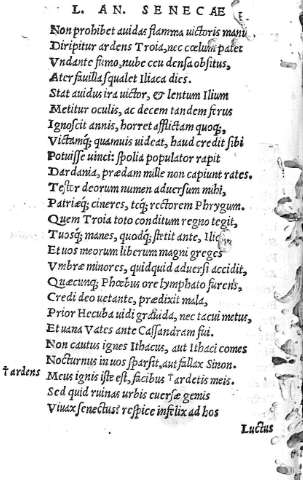 L. AN. SENECAE
Non prohibet auidas flamma uictoris manu
Diripitur ardens Troia, nec cœlum patet
Vndante fumo, nube ceu densa obsitus,
Ater fauilla squalet Iliaca dies.
Stat auidus ira uictor, & lentum Ilium
Metitur oculis, ac decem tandem ferus
Ignoscit annis, horret afflictam quoq;,
Victamq;, quamuis uideat, haud credit sibi
Potuisse uinci: spolia populator rapit
Dardania, prædam mille non capiunt rates.
Testor deorum numen aduersum mihi,
Patriæq; cineres, teq; rectorem Phrygum.
Quem Troia toto conditum regno tegit,
Tuosq; manes, quodq; stetit ante,
Et uos meorum liberum magni greges
Vmbræ minores, quidquid aduersi accidit,
Quæcunq; Phœbus ore lymphato furens,
Credi deo uetante, prædixit mala,
Prior Hecuba uidi grauida, nec tacui metus,
Et uana Vates ante Cassandram fui.
Non cautus ignes Ithacus, aut Ithaci comes
Nocturnus in uos sparsit, aut fallax Sinon.
†ardens Meus ignis iste est, facibus †ardetis meis.
Sed quid ruinas urbis euersæ gemis
Viuax senectus? respice infelix ad hos
Luctus